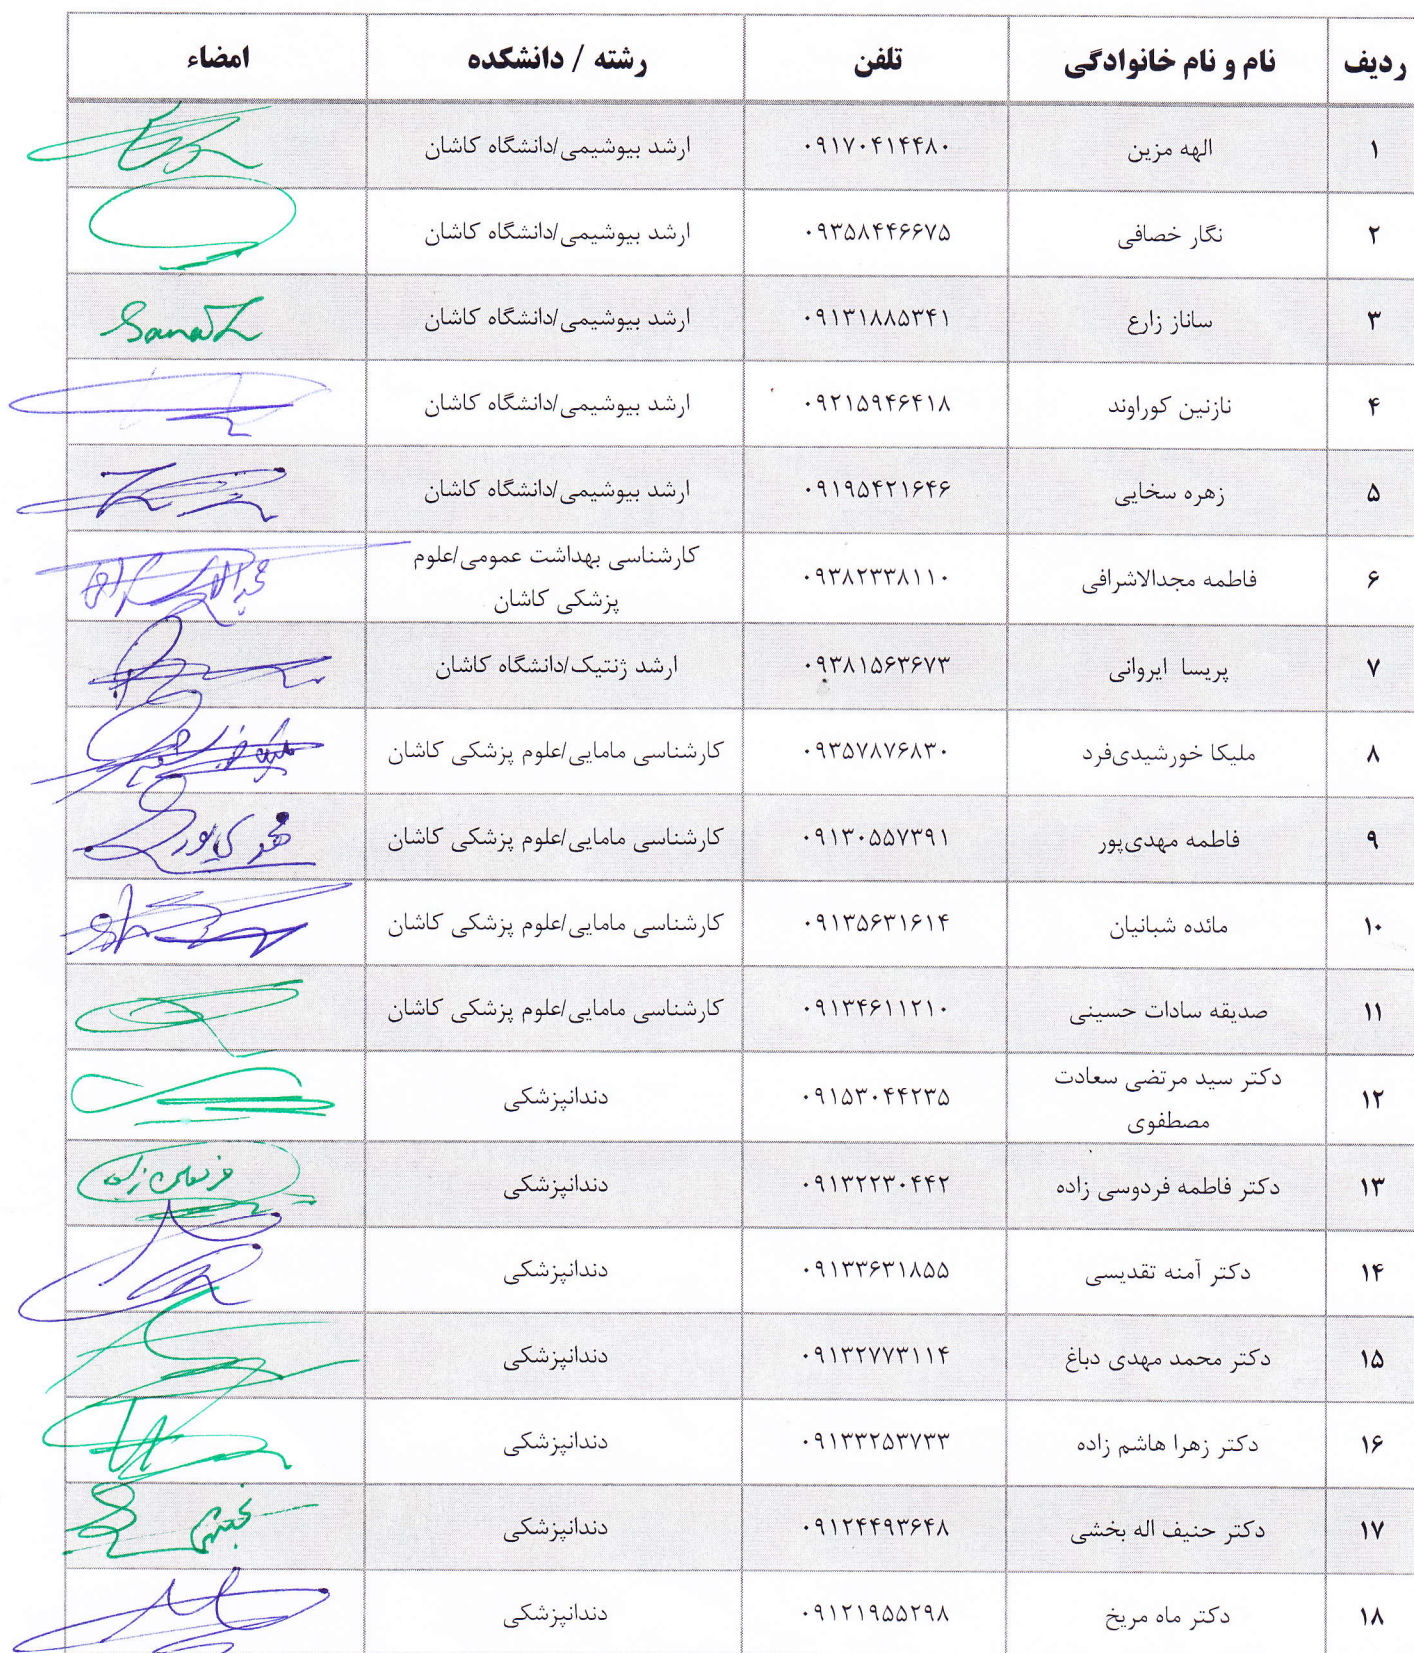 ردیف نام و نام خانوادگی تلفن رشته / دانشکده امضاء
۱ الهه مزین ۰۹۱۷۰۴۱۴۴۸۰ ارشد بیوشیمی/دانشگاه کاشان
۲ نگار خصافی ۰۹۳۵۸۴۴۶۶۷۵ ارشد بیوشیمی/دانشگاه کاشان
۳ ساناز زارع ۰۹۱۳۱۸۸۵۳۴۱ ارشد بیوشیمی/دانشگاه کاشان Sanaz
۴ نازنین کوراوند ۰۹۲۱۵۹۴۶۴۱۸ ارشد بیوشیمی/دانشگاه کاشان
۵ زهره سخایی ۰۹۱۹۵۴۲۱۶۴۶ ارشد بیوشیمی/دانشگاه کاشان
۶ فاطمه مجدالاشرافی ۰۹۳۸۲۳۳۸۱۱۰ کارشناسی بهداشت عمومی/علوم
پزشکی کاشان
۷ پریسا ایروانی ۰۹۳۸۱۵۶۳۶۷۳ ارشد ژنتیک/دانشگاه کاشان
۸ ملیکا خورشیدی‌فرد ۰۹۳۵۷۸۷۶۸۳۰ کارشناسی مامایی/علوم پزشکی کاشان
۹ فاطمه مهدی‌پور ۰۹۱۳۰۵۵۷۳۹۱ کارشناسی مامایی/علوم پزشکی کاشان مهدی پور
۱۰ مائده شبانیان ۰۹۱۳۵۶۳۱۶۱۴ کارشناسی مامایی/علوم پزشکی کاشان
۱۱ صدیقه سادات حسینی ۰۹۱۳۴۶۱۱۲۱۰ کارشناسی مامایی/علوم پزشکی کاشان
۱۲ دکتر سید مرتضی سعادت
مصطفوی ۰۹۱۵۳۰۴۴۲۳۵ دندانپزشکی
۱۳ دکتر فاطمه فردوسی زاده ۰۹۱۳۲۲۳۰۴۴۲ دندانپزشکی
۱۴ دکتر آمنه تقدیسی ۰۹۱۳۳۶۳۱۸۵۵ دندانپزشکی
۱۵ دکتر محمد مهدی دباغ ۰۹۱۳۲۷۷۳۱۱۴ دندانپزشکی
۱۶ دکتر زهرا هاشم زاده ۰۹۱۳۳۲۵۳۷۳۳ دندانپزشکی
۱۷ دکتر حنیف اله بخشی ۰۹۱۲۴۴۹۳۶۴۸ دندانپزشکی
۱۸ دکتر ماه مریخ ۰۹۱۲۱۹۵۵۲۹۸ دندانپزشکی